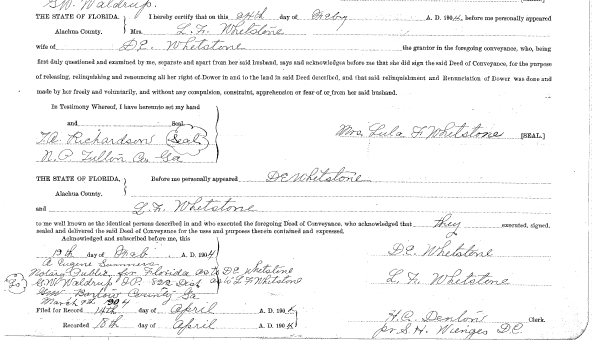 G.W. Waldrup.
THE STATE OF FLORIDA, I hereby certify that on this 24th day of Febry A. D. 1904, before me personally appeared
Alachua County. Mrs. L. F. Whetstone
wife of D.E. Whetstone the grantor in the foregoing conveyance, who, being
first duly questioned and examined by me, separate and apart from her said husband, says and acknowledges before me that she did sign the said Deed of Conveyance, for the purpose
of releasing, relinquishing and renouncing all her right of Dower in and to the land in said Deed described, and that said relinquishment and Renunciation of Dower was done and
made by her freely and voluntarily, and without any compulsion, constraint, apprehension or fear of or from her said husband.
In Testimony Whereof, I have hereunto set my hand
and Seal
T.A. Richardson Seal Mrs. Lula F. Whetstone [SEAL.]
N.P. Fulton Co Ga
THE STATE OF FLORIDA, Before me personally appeared D E Whetstone
Alachua County.
and L. F. Whetstone
to me well known as the identical persons described in and who executed the foregoing Deed of Conveyance, who acknowledged that they executed, signed,
sealed and delivered the said Deed of Conveyance for the uses and purposes therein contained and expressed.
Acknowledged and subscribed before me, this
19th day of Feb A. D. 1904 D.E. Whetstone
A Eugene Summers
Notary Public for Florida as to D E Whetstone
G.W. Waldrup J.P. 822 Dist as to L F Whetstone L. F. Whetstone
G.M. Bartow County Ga
March 9th 1904
Filed for Record 14th day of April A. D. 1904 H.C. Denton Clerk.
Recorded 18th day of April A. D. 1904 pr S. H. Wienges D.C.